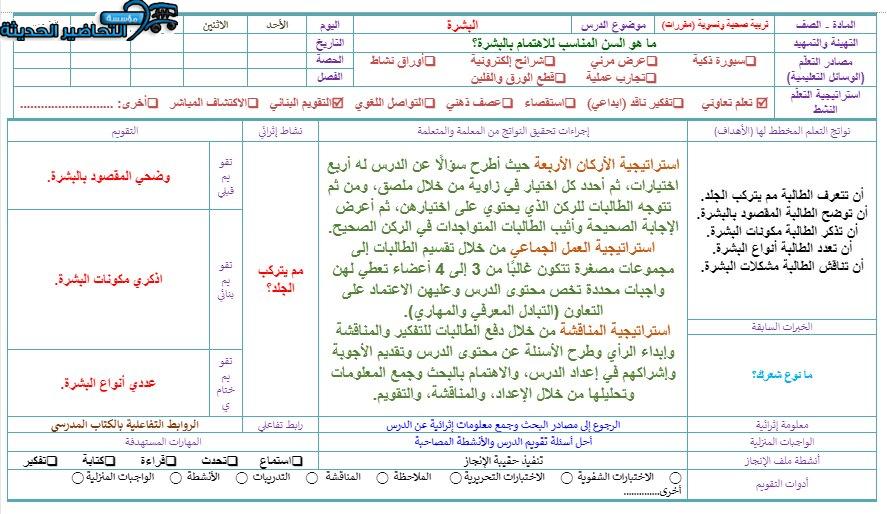 مؤسسة
التحاضير الحديثة
المادة - الصف
تربية صحية ونسوية (مقررات)
موضوع الدرس
البشرة
اليوم
الأحد
الاثنين
التهيئة والتمهيد
ما هو السن المناسب للاهتمام بالبشرة؟
التاريخ
مصادر التعلم
(الوسائل التعليمية)
سبورة ذكية
عرض مرئي
شرائح إلكترونية
أوراق نشاط
تجارب عملية
قطع الورق والفلين
الحصة
الفصل
استراتيجية التعلم
النشط
تعلم تعاوني
تفكير ناقد (ابداعي)
استقصاء
عصف ذهني
التواصل اللغوي
التقويم البنائي
الاكتشاف المباشر
أخرى: ........................
نواتج التعلم المخطط لها (الأهداف)
إجراءات تحقيق النواتج من المعلمة والمتعلمة
نشاط إثرائي
التقويم
أن تتعرف الطالبة مم يتركب الجلد.
أن توضح الطالبة المقصود بالبشرة.
أن تذكر الطالبة مكونات البشرة.
أن تعدد الطالبة أنواع البشرة.
أن تناقش الطالبة مشكلات البشرة.
الخبرات السابقة
ما نوع شعرك؟
استراتيجية الأركان الأربعة حيث أطرح سؤالًا عن الدرس له أربع
اختيارات، ثم أحدد كل اختيار في زاوية من خلال ملصق، ومن ثم
تتوجه الطالبات للركن الذي يحتوي على اختيارهن، ثم أعرض
الإجابة الصحيحة وأثيب الطالبات المتواجدات في الركن الصحيح.
استراتيجية العمل الجماعي من خلال تقسيم الطالبات إلى
مجموعات مصغرة تتكون غالبًا من 3 إلى 4 أعضاء تعطي لهن
واجبات محددة تخص محتوى الدرس وعليهن الاعتماد على
التعاون (التبادل المعرفي والمهاري).
استراتيجية المناقشة من خلال دفع الطالبات للتفكير والمناقشة
وإبداء الرأي وطرح الأسئلة عن محتوى الدرس وتقديم الأجوبة
وإشراكهم في إعداد الدرس، والاهتمام بالبحث وجمع المعلومات
وتحليلها من خلال الإعداد، والمناقشة، والتقويم.
مم يتركب
الجلد؟
تقو
يم
قبلي
وضحي المقصود بالبشرة.
تقو
يم
بنائي
اذكري مكونات البشرة.
تقو
يم
ختام
ي
عددي أنواع البشرة.
معلومة إثرائية
الرجوع إلى مصادر البحث وجمع معلومات إثرائية عن الدرس
رابط تفاعلي
الروابط التفاعلية بالكتاب المدرسي
الواجبات المنزلية
أحل أسئلة تقويم الدرس والأنشطة المصاحبة
المهارات المستهدفة
أنشطة ملف الإنجاز
تنفيذ حقيبة الإنجاز
استماع
تحدث
قراءة
كتابة
تفكير
أدوات التقويم
الاختبارات الشفوية
الاختبارات التحريرية
الملاحظة
المناقشة
التدريبات
الأنشطة
الواجبات المنزلية
أخرى..............